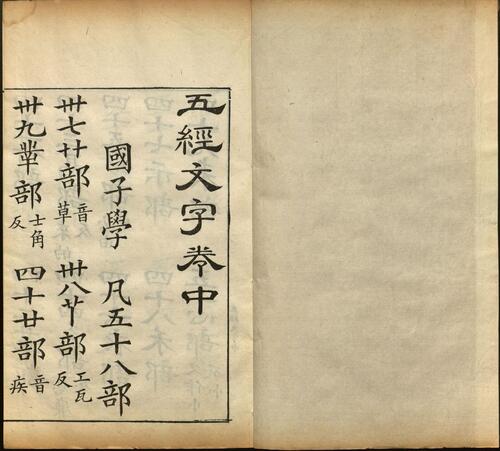 五經文字卷中
國子學 凡五十八部
卅七艹部 音草 卅八𦫳部 工瓦反
卅九丵部 士角反 四十廿部 音疾